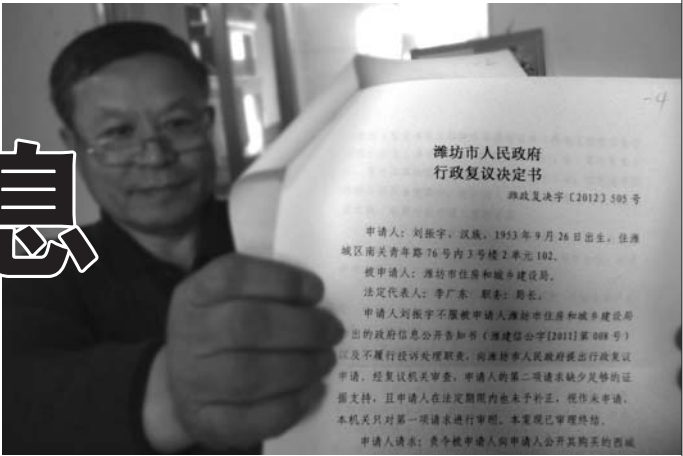 息
-4
潍坊市人民政府
行政复议决定书
潍政复决字〔2012〕505 号
申请人：刘振宇，汉族，1953 年 9 月 26 日出生，住潍
城区南关青年路 76 号内 3 号楼 2 单元 102。
被申请人：潍坊市住房和城乡建设局。
法定代表人：李广东 职务：局长。
申请人刘振宇不服被申请人潍坊市住房和城乡建设局
出的政府信息公开告知书（潍建信公字[2011]第 008 号）
以及不履行投诉处理职责，向潍坊市人民政府提出行政复议
申请。经复议机关审查，申请人的第二项请求缺少足够的证
据支持，且申请人在法定期限内也未予补正，视作未申请，
本机关只对第一项请求进行审理。本案现已审理终结。
申请人请求：责令被申请人向申请人公开其购买的西城